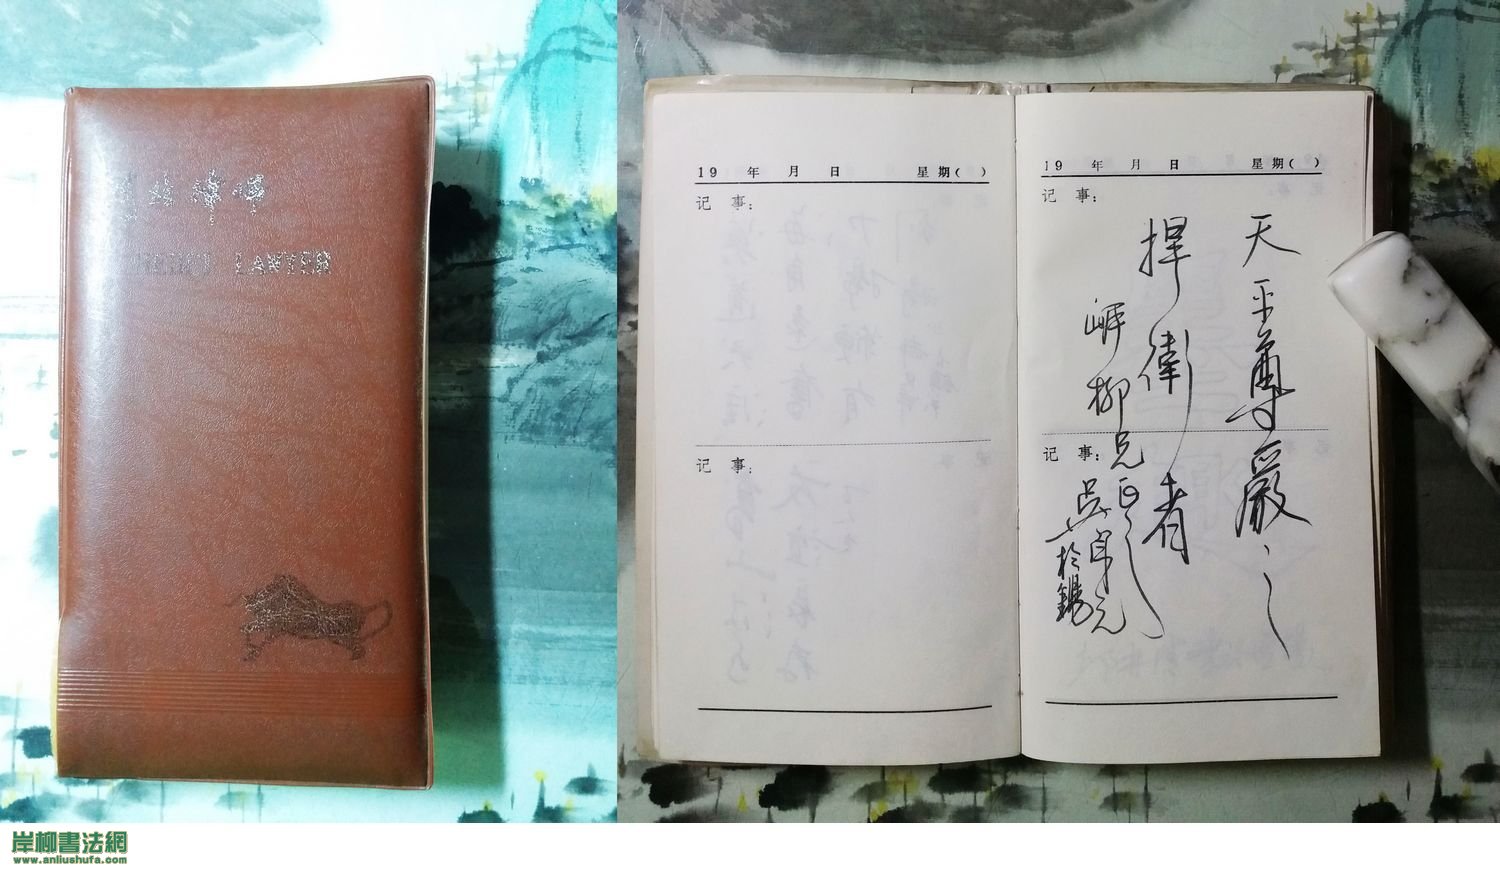 LAWYER
19 年 月 日 星 期( )
记 事:
记 事:
19 年 月 日 星 期( )
记 事:
记 事:
天平尊嚴之
捍衛者
岸柳兄正之
吴卓元
於錫
岸柳書法網
www.anliushufa.com